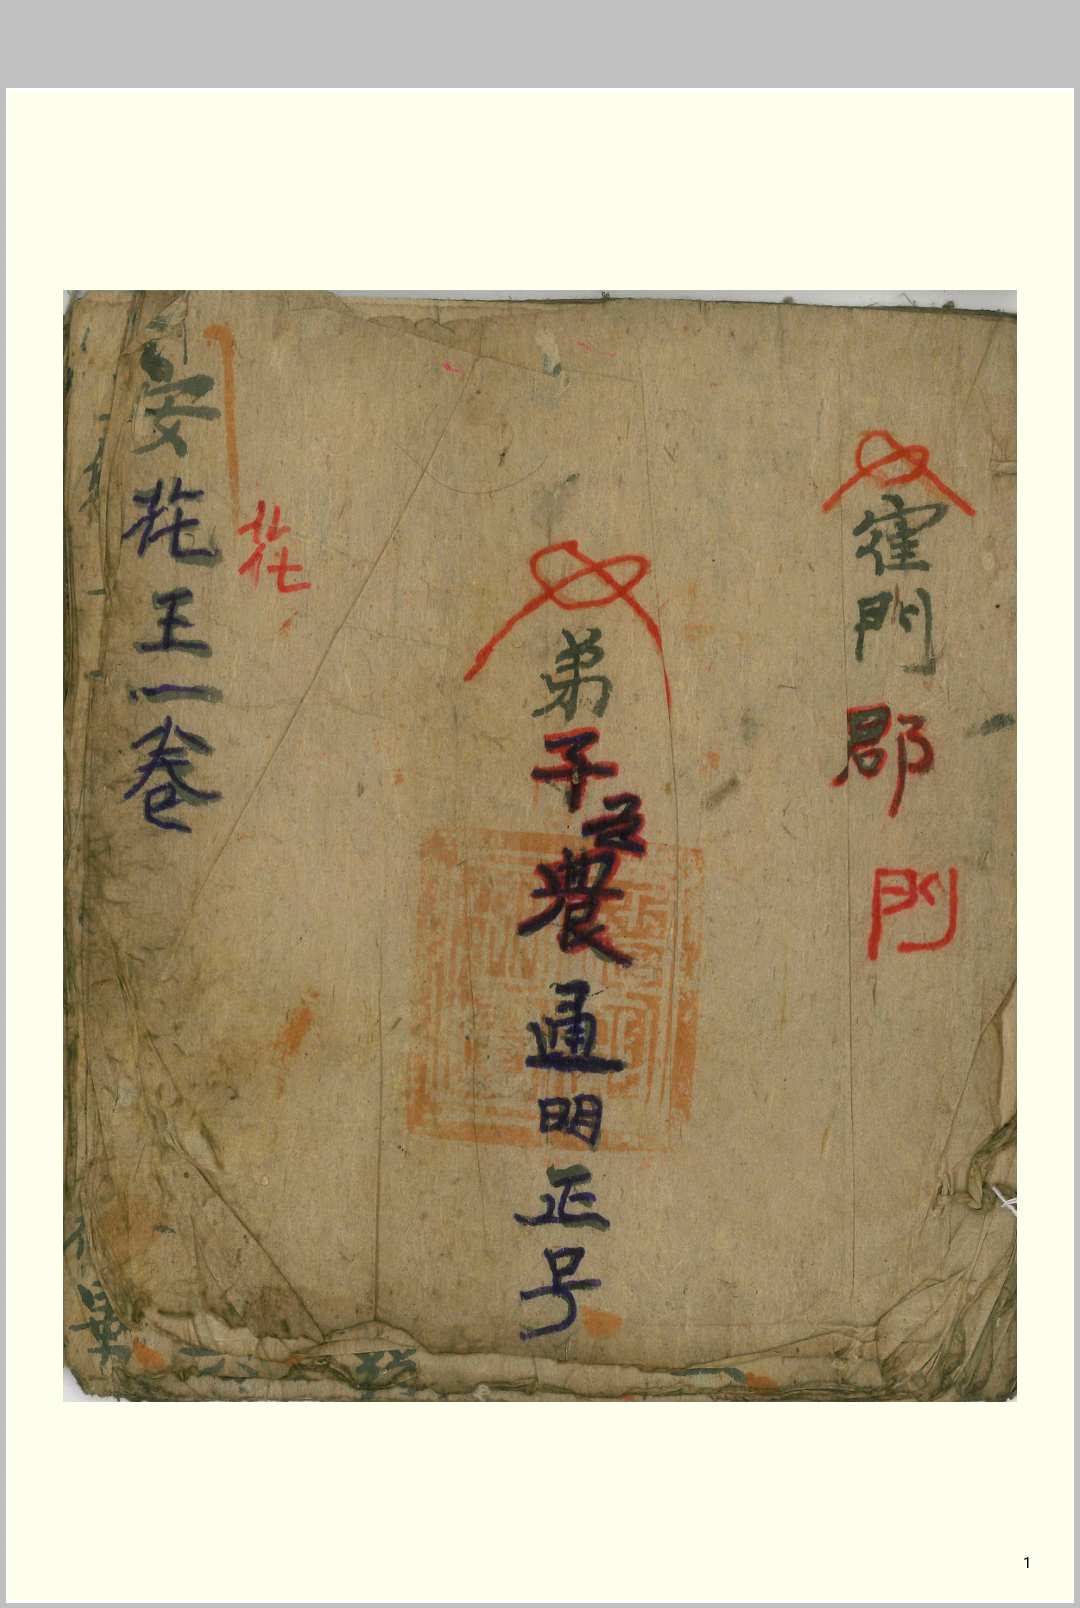 霍門郡
門
弟子農通明正号
花
安花王一卷
1